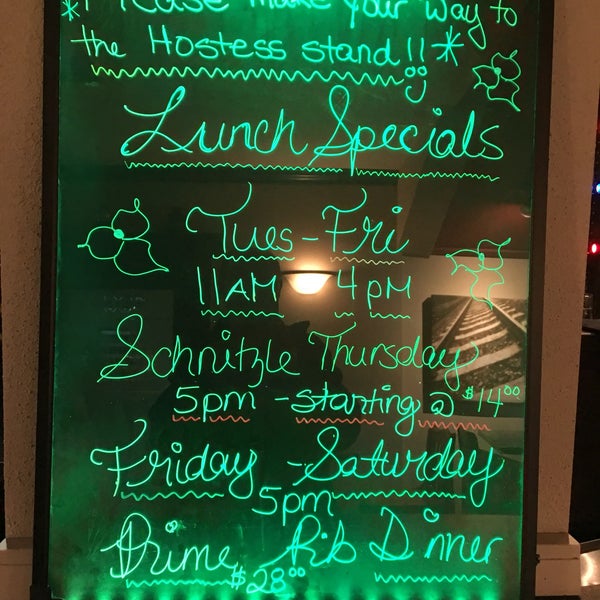 *Please make your way to
the Hostess stand!!*
Lunch Specials
Tues-Fri
11AM 4pm
Schnitzle Thursday
5pm -starting @ $14.00
Friday -Saturday
5pm
Prime Rib Dinner
$28.00